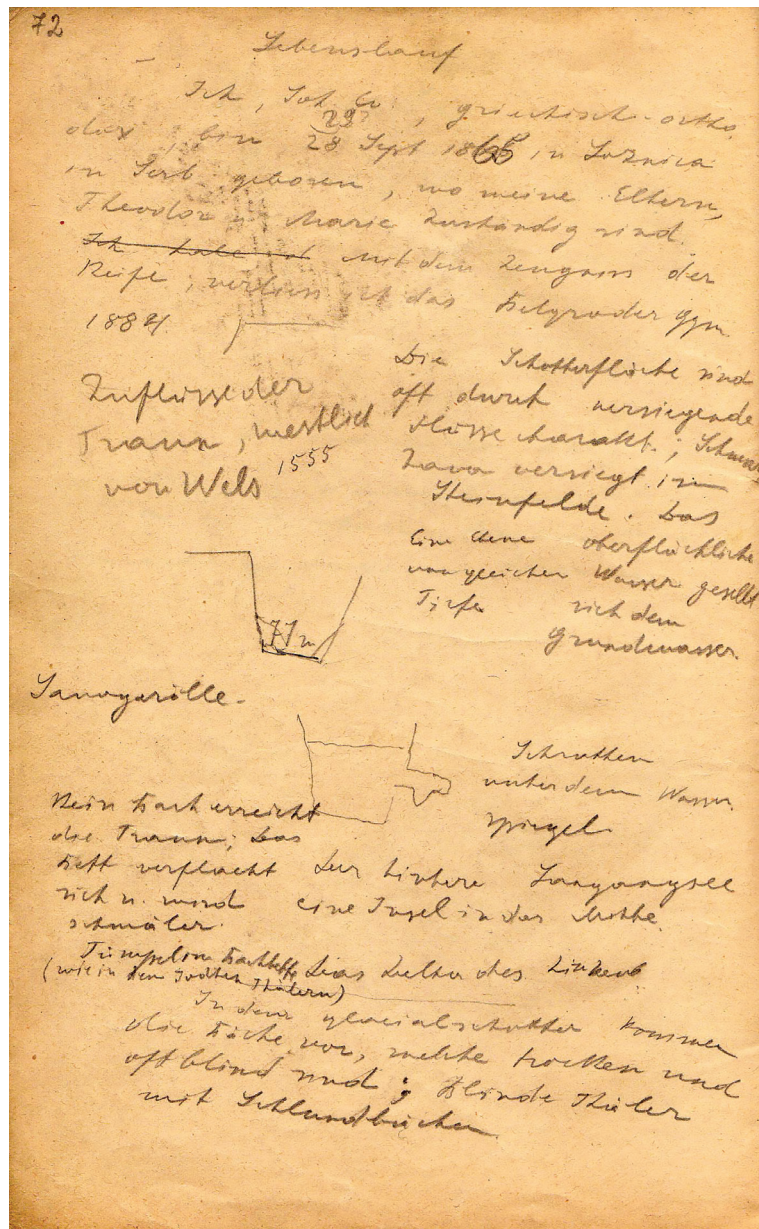 72
Lebenslauf
Ich, Joh. Cv., griechisch-ortho-
dox, bin 29/28 Sept 1865 in Loznica
in Serb. geboren, wo meine Eltern,
Theodor u. Marie zuständig sind.
Ich habe mit dem Zeugniss der
Reife, verliess ich das Belgrader Gym
1884
Zuflüsse der
Traun, westlich
von Wels 1555
Die Schotterfläche sind
oft durch versiegende
Flüsse charakt.; Schwar-
zava versiegt im
Steinfelde. Das
oberflächliche
Wasser gesellt
sich dem
Grundwasser.
Eine Ebene
von gleicher
Tiefe
71 m
Schratten
unter dem Wasser
spiegel.
Kein Bach erreicht
die Traun; das
Bett verflacht
sich u. wird
schmäler.
Der hintere
eine Insel in das Mitte.
Tümpel im Bachbette
(wie in den Thälern)
Das Delta des
In dem glacialschotter kommen
die Bäche vor, welche trocken und
oft blind sind; Blinde Thäler
mit Schlundbächen